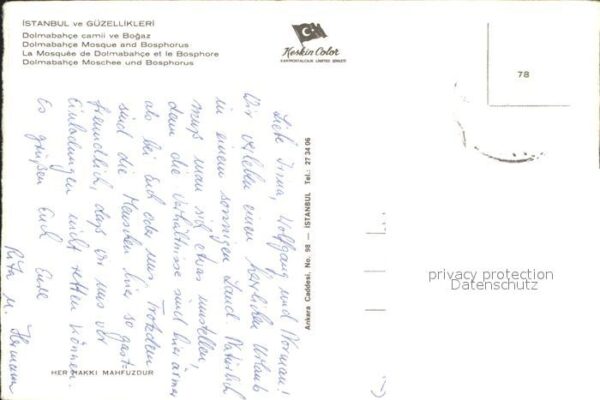 İSTANBUL ve GÜZELLİKLERİ
Dolmabahçe camii ve Boğaz
Dolmabahçe Mosque and Bosphorus
La Mosquée de Dolmabahçe et le Bosphore
Dolmabahçe Moschee und Bosphorus
Keskin Color
KARTPOSTALCILIK LIMITED ŞİRKETİ
78
Liebe Irma, Wolfgang und Norman!
Wir erleben einen herrlichen Urlaub
in einem sonnigen Land. Natürlich
muß man sich etwas umstellen,
denn die Verhältnisse sind hier ärmer
als bei Euch oder uns. Trotzdem
sind die Menschen hier so gast-
freundlich, daß wir uns vor
Einladungen nicht retten können.
Es grüßen Euch Eure
Rita u. Hermann
Ankara Caddesi, No. 98 — İSTANBUL Tel.: 27 34 06
HER HAKKI MAHFUZDUR
privacy protection
Datenschutz